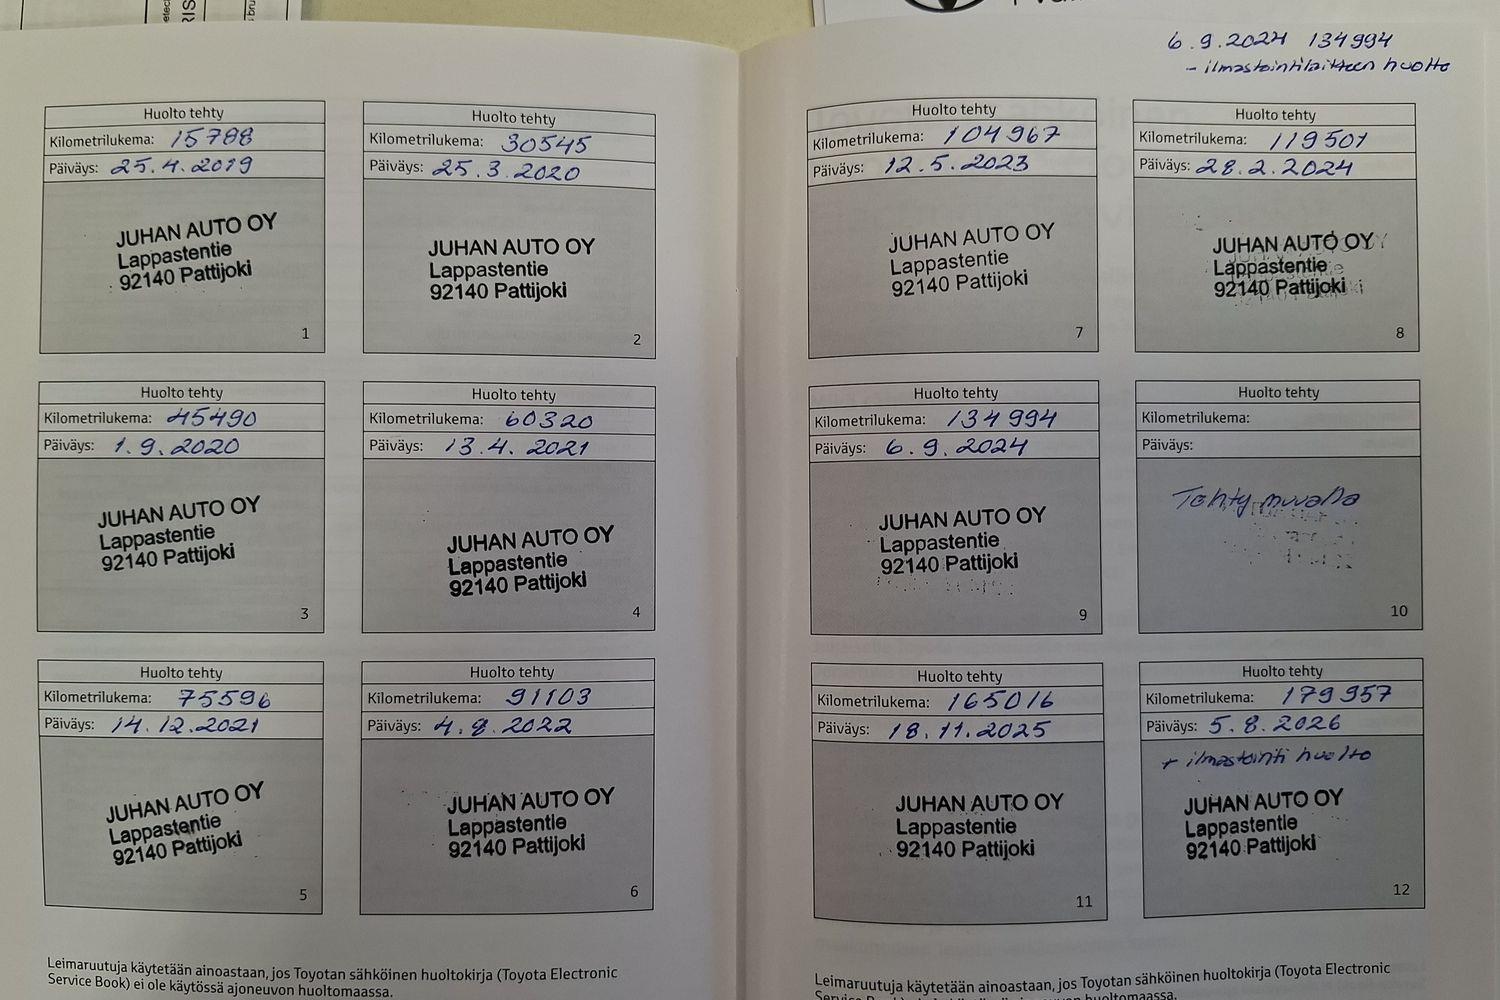 6.9.2024 134994
- ilmastointilaitteen huolto
Huolto tehty
Kilometrilukema: 15788
Päiväys: 25.4.2019
JUHAN AUTO OY
Lappastentie
92140 Pattijoki
1
Huolto tehty
Kilometrilukema: 30545
Päiväys: 25.3.2020
JUHAN AUTO OY
Lappastentie
92140 Pattijoki
2
Huolto tehty
Kilometrilukema: 45490
Päiväys: 1.9.2020
JUHAN AUTO OY
Lappastentie
92140 Pattijoki
3
Huolto tehty
Kilometrilukema: 60320
Päiväys: 13.4.2021
JUHAN AUTO OY
Lappastentie
92140 Pattijoki
4
Huolto tehty
Kilometrilukema: 75596
Päiväys: 14.12.2021
JUHAN AUTO OY
Lappastentie
92140 Pattijoki
5
Huolto tehty
Kilometrilukema: 91103
Päiväys: 4.8.2022
JUHAN AUTO OY
Lappastentie
92140 Pattijoki
6
Leimaruutuja käytetään ainoastaan, jos Toyotan sähköinen huoltokirja (Toyota Electronic
Service Book) ei ole käytössä ajoneuvon huoltomaassa.
Huolto tehty
Kilometrilukema: 104967
Päiväys: 12.5.2023
JUHAN AUTO OY
Lappastentie
92140 Pattijoki
7
Huolto tehty
Kilometrilukema: 119501
Päiväys: 28.2.2024
JUHAN AUTO OY
Lappastentie
92140 Pattijoki
8
Huolto tehty
Kilometrilukema: 134994
Päiväys: 6.9.2024
JUHAN AUTO OY
Lappastentie
92140 Pattijoki
9
Huolto tehty
Kilometrilukema:
Päiväys:
Tehty muualla
10
Huolto tehty
Kilometrilukema: 165016
Päiväys: 18.11.2025
JUHAN AUTO OY
Lappastentie
92140 Pattijoki
11
Huolto tehty
Kilometrilukema: 179957
Päiväys: 5.8.2026
+ ilmastointi huolto
JUHAN AUTO OY
Lappastentie
92140 Pattijoki
12
Leimaruutuja käytetään ainoastaan, jos Toyotan sähköinen huoltokirja (Toyota Electronic